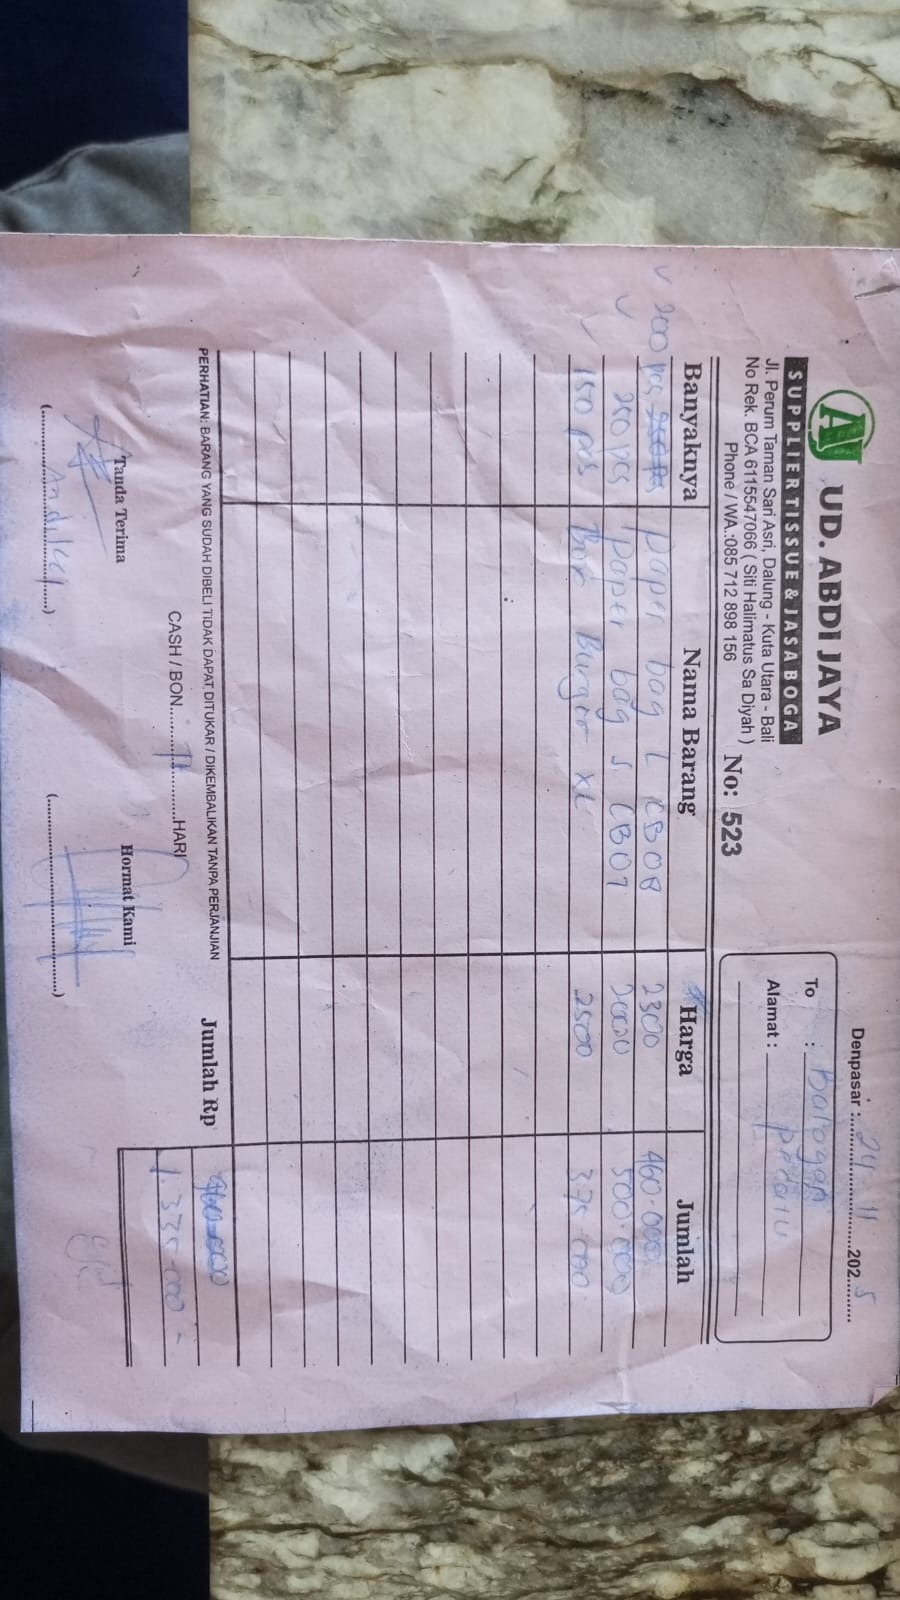 AJ
UD. ABDI JAYA
SUPPLIER TISSUE & JASA BOGA
Jl. Perum Taman Sari Asri, Dalung - Kuta Utara - Bali
No Rek. BCA 6115547066 ( Siti Halimatus Sa Diyah )
Phone / WA.:085 712 898 156
No: 523
Denpasar :........24 - 11........202..5....
To :
Alamat :
Banyaknya Nama Barang Harga Jumlah
200 pcs paper bag L CB08 2300 460.000
250 pcs paper bag S CB07 2000 500.000
150 pcs Box Burger XL 2500 375.000
PERHATIAN: BARANG YANG SUDAH DIBELI TIDAK DAPAT DITUKAR / DIKEMBALIKAN TANPA PERJANJIAN
Jumlah Rp
1.335.000 -
CASH / BON....................HARI
Tanda Terima Hormat Kami